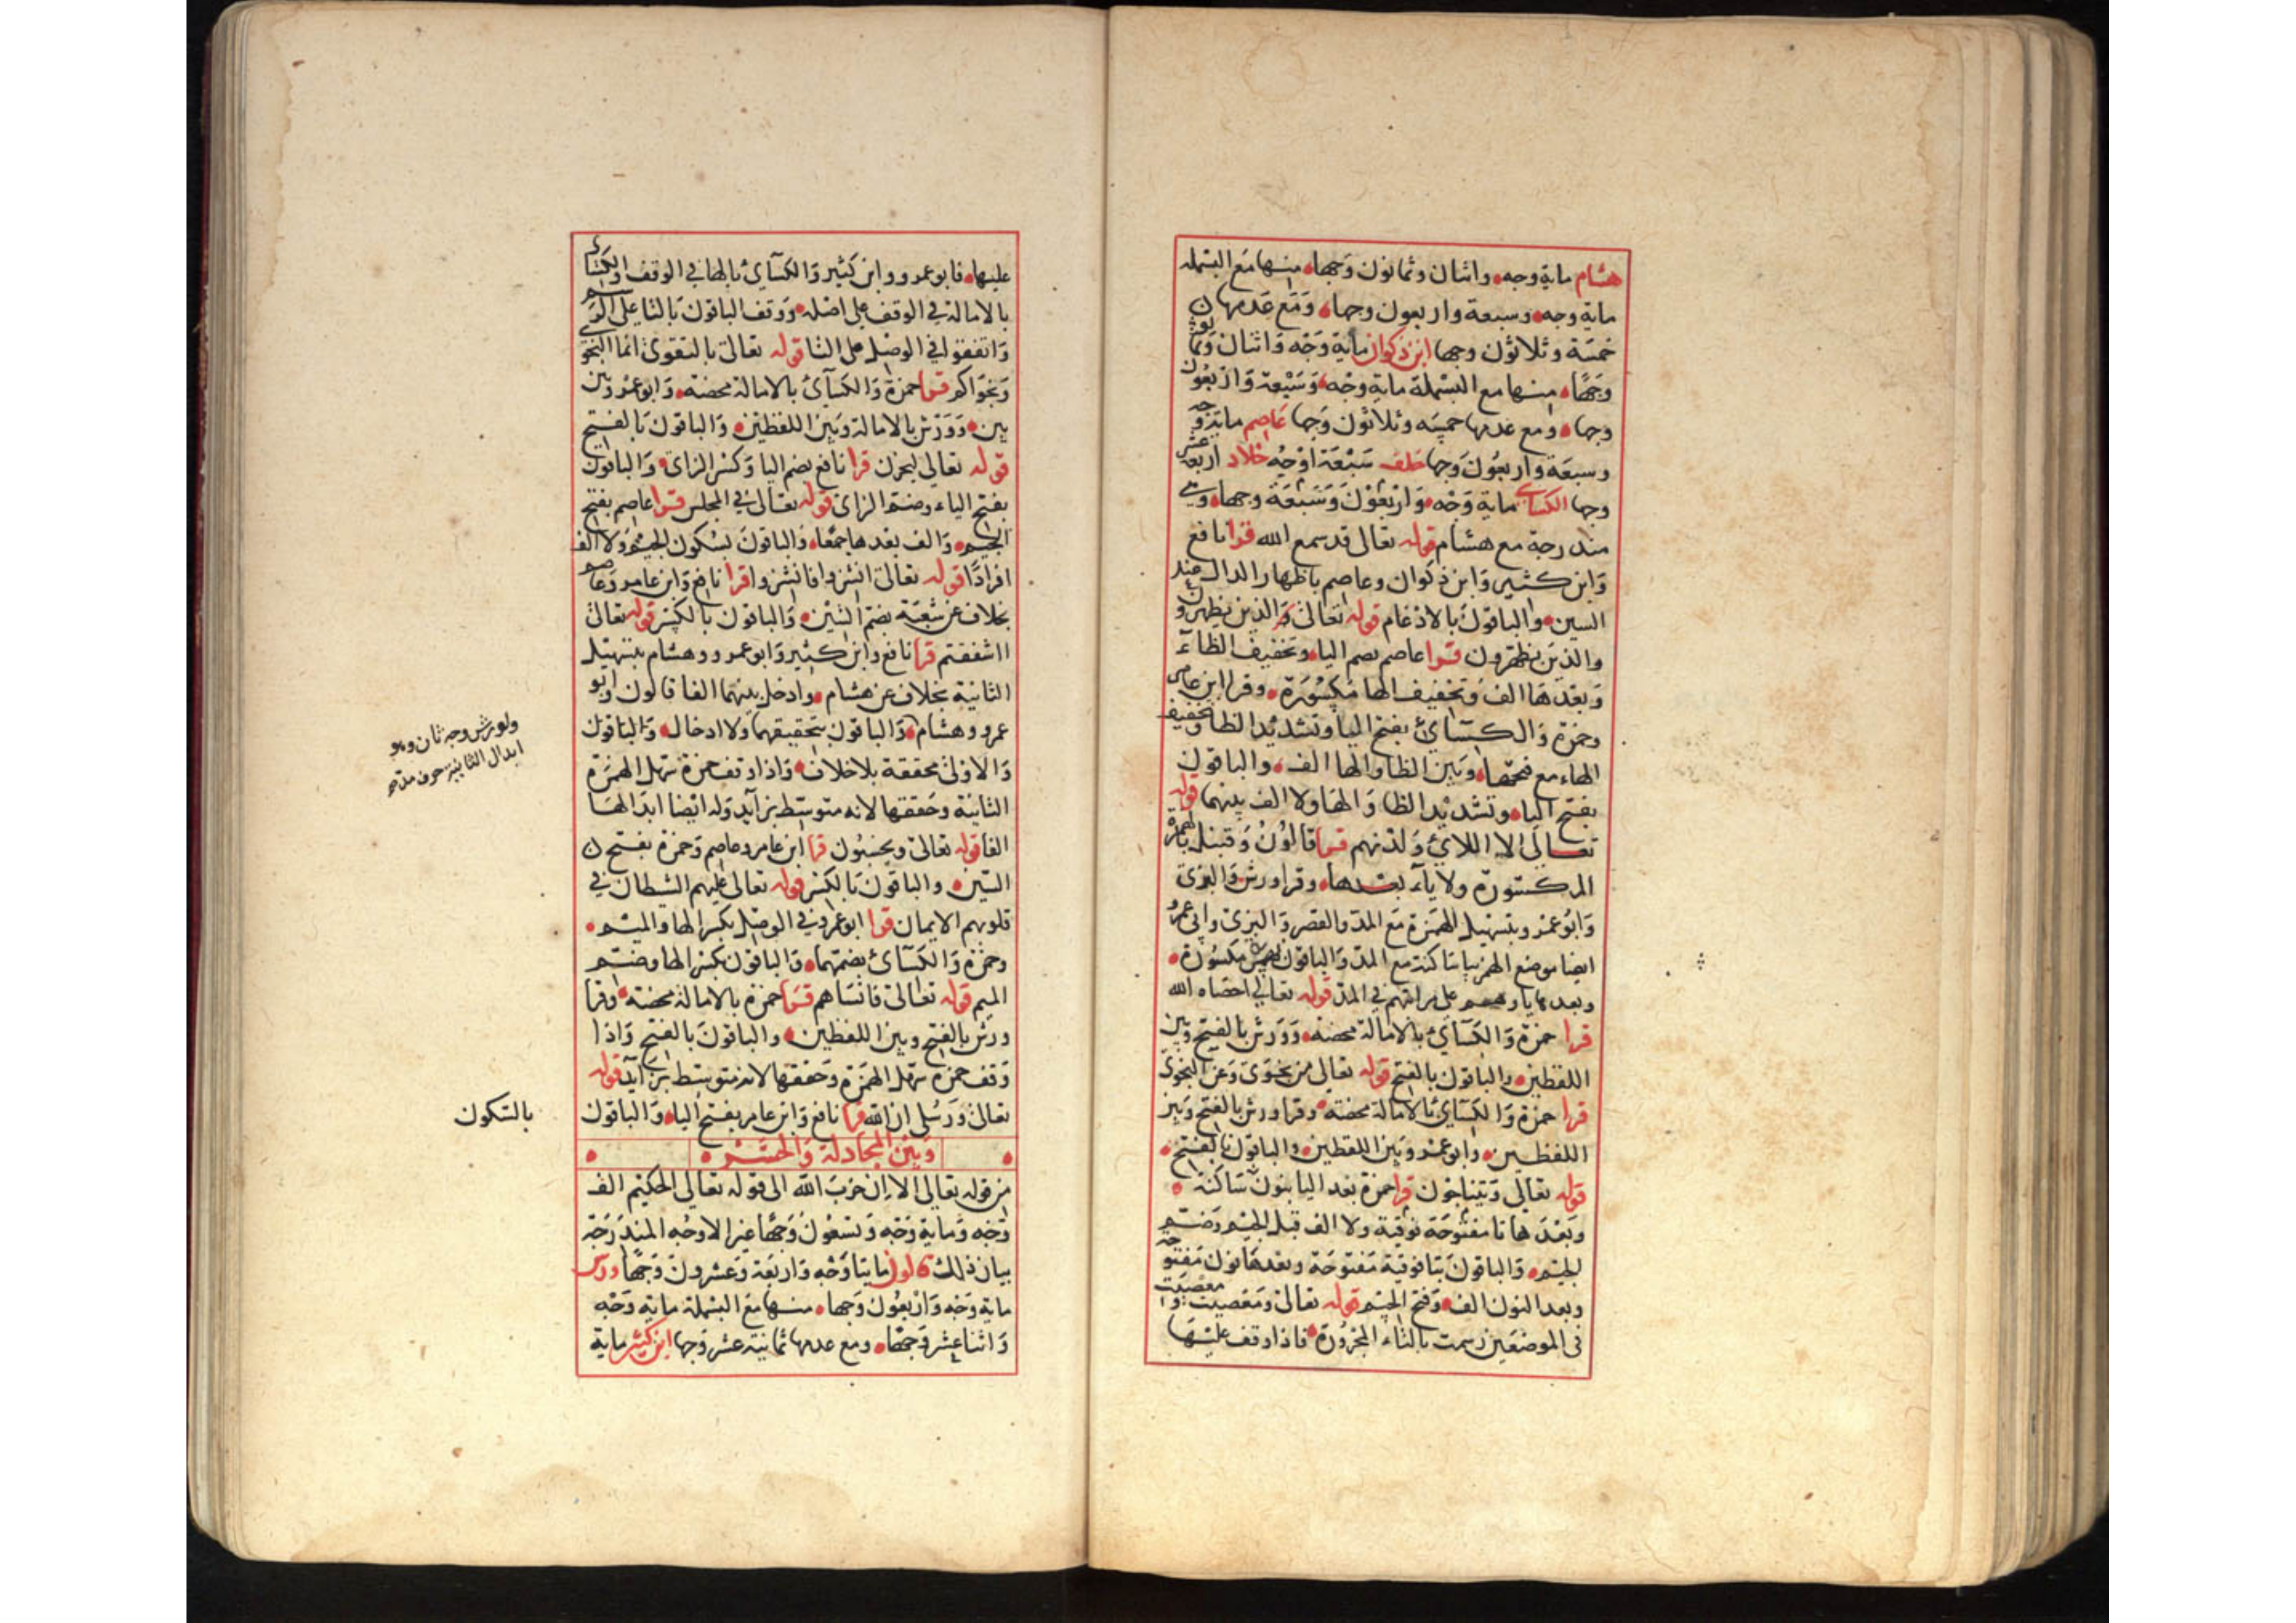 هشام ماية وجه واثنان وثمانون وجها منها مع البسملة
ماية وجه وسبعة واربعون وجها ومع عدمها
خمسة وثلاثون وجها ابن ذكوان ماية وجه واثنان وثمانون
وجها منها مع البسملة ماية وجه وسبعة واربعون
وجها ومع عدمها خمسة وثلاثون وجها عاصم ماية وجه
وسبعة واربعون وجها خلف سبعة اوجه خلاد اربعة عشر
وجها الكساي ماية وجه واربعون وسبعة وجها وهي
مندرجة مع هشام قوله تعالى قد سمع الله قرا نافع
وابن كثير وابن ذكوان وعاصم باظهار الدال عند
السين والباقون بالادغام قوله تعالى والذين يظهرون
والذين يظهرون قرا عاصم بضم اليا وتخفيف الظاء
وبعدها الف وتخفيف الها مكسورة وقرا ابن عامر
وحمزة والكسائ بفتح اليا وتشديد الظا وتخفيف
الهاء مع فتحها وبين الظا والها الف والباقون
بفتح اليا وتشديد الظا والها ولا الف بينهما قوله
تعالى الا اللاي ولدنهم قرا قالون وقنبل بالهمزة
المكسورة ولا ياء بعدها وقرا ورش والبزي
وابو عمرو بتسهيل الهمزة مع المد والقصر والبزي وابي عمرو
ايضا موضع الهمز يا ساكنة مع المد والباقون بهمزة مكسورة
وبعدها يا وهم على مراتبهم في المد قوله تعالى احصاه الله
قرا حمزة والكسائ بالامالة محضة وورش بالفتح وبين
اللفظين والباقون بالفتح قوله تعالى من نجوى وعن النجوى
قرا حمزة والكسائ بالامالة محضة وقرا ورش بالفتح وبين
اللفظين وابو عمرو وبين اللفظين والباقون بالفتح
قوله تعالى ويتناجون قرا حمزة بعد اليا بنون ساكنة
وبعدها تا مفتوحة فوقية ولا الف قبل الجيم وضم
الجيم والباقون بتا فوقية مفتوحة وبعدها نون مفتوحة
وبعد النون الف وفتح الجيم قوله تعالى ومعصيت ومعصيت
في الموضعين رسمت بالتاء المجرورة فاذا وقف عليها
عليها فابو عمرو وابن كثير والكسائ بالها في الوقف والكسائ
بالامالة في الوقف على اصله ووقف الباقون بالتا على الرسم
واتفقوا في الوصل على التا قوله تعالى بالتقوى انما النجوى
ونجواكم قرا حمزة والكسائ بالامالة محضة وابو عمرو بين
بين وورش بالامالة وبين اللفظين والباقون بالفتح
قوله تعالى ليحزن قرا نافع بضم اليا وكسر الزاي والباقون
بفتح الياء وضم الزاي قوله تعالى في المجلس قرا عاصم بفتح
الجيم والف بعدها جمعا والباقون بسكون الجيم ولا الف
افرادا قوله تعالى انشزوا فانشزوا قرا نافع وابن عامر وعاصم
بخلاف عن شعبة بضم الشين والباقون بالكسر قوله تعالى
ااشفقتم قرا نافع وابن كثير وابو عمرو وهشام بتسهيل
الثانية بخلاف عن هشام وادخل بينهما الفا قالون وابو
عمرو وهشام والباقون بتحقيقهما ولا ادخال والباقون
والاولى محققة بلا خلاف واذا وقف حمزة سهل الهمزة
الثانية وحققها لانه متوسط بزايد وله ايضا ابدالها
الفا قوله تعالى ويحسبون قرا ابن عامر وعاصم وحمزة بفتح
السين والباقون بالكسر قوله تعالى عليهم الشيطان في
قلوبهم الايمان قرا ابو عمرو في الوصل بكسر الها والميم
وحمزة والكسائ بضمهما والباقون بكسر الها وضم
الميم قوله تعالى فانساهم قرا حمزة بالامالة محضة وقرا
ورش بالفتح وبين اللفظين والباقون بالفتح واذا
وقف حمزة سهل الهمزة وحققها لانه متوسط بزايد قوله
تعالى ورسلي ان الله قرا نافع وابن عامر بفتح اليا والباقون
وبين المجادلة والحشر
من قوله تعالى الا ان حزب الله الى قوله تعالى الحكيم الف
وجه وماية وجه وتسعون وجها غير الاوجه المندرجة
بيان ذلك قالون مايتا وجه واربعة وعشرون وجها ورش
ماية وجه واربعون وجها منها مع البسملة ماية وجه
واثنا عشر وجها ومع عدمها ثمانية عشر وجها ابن كثير ماية
ولورش وجه ثان وهو
ابدال الثانية حرف مد صح
بالسكون